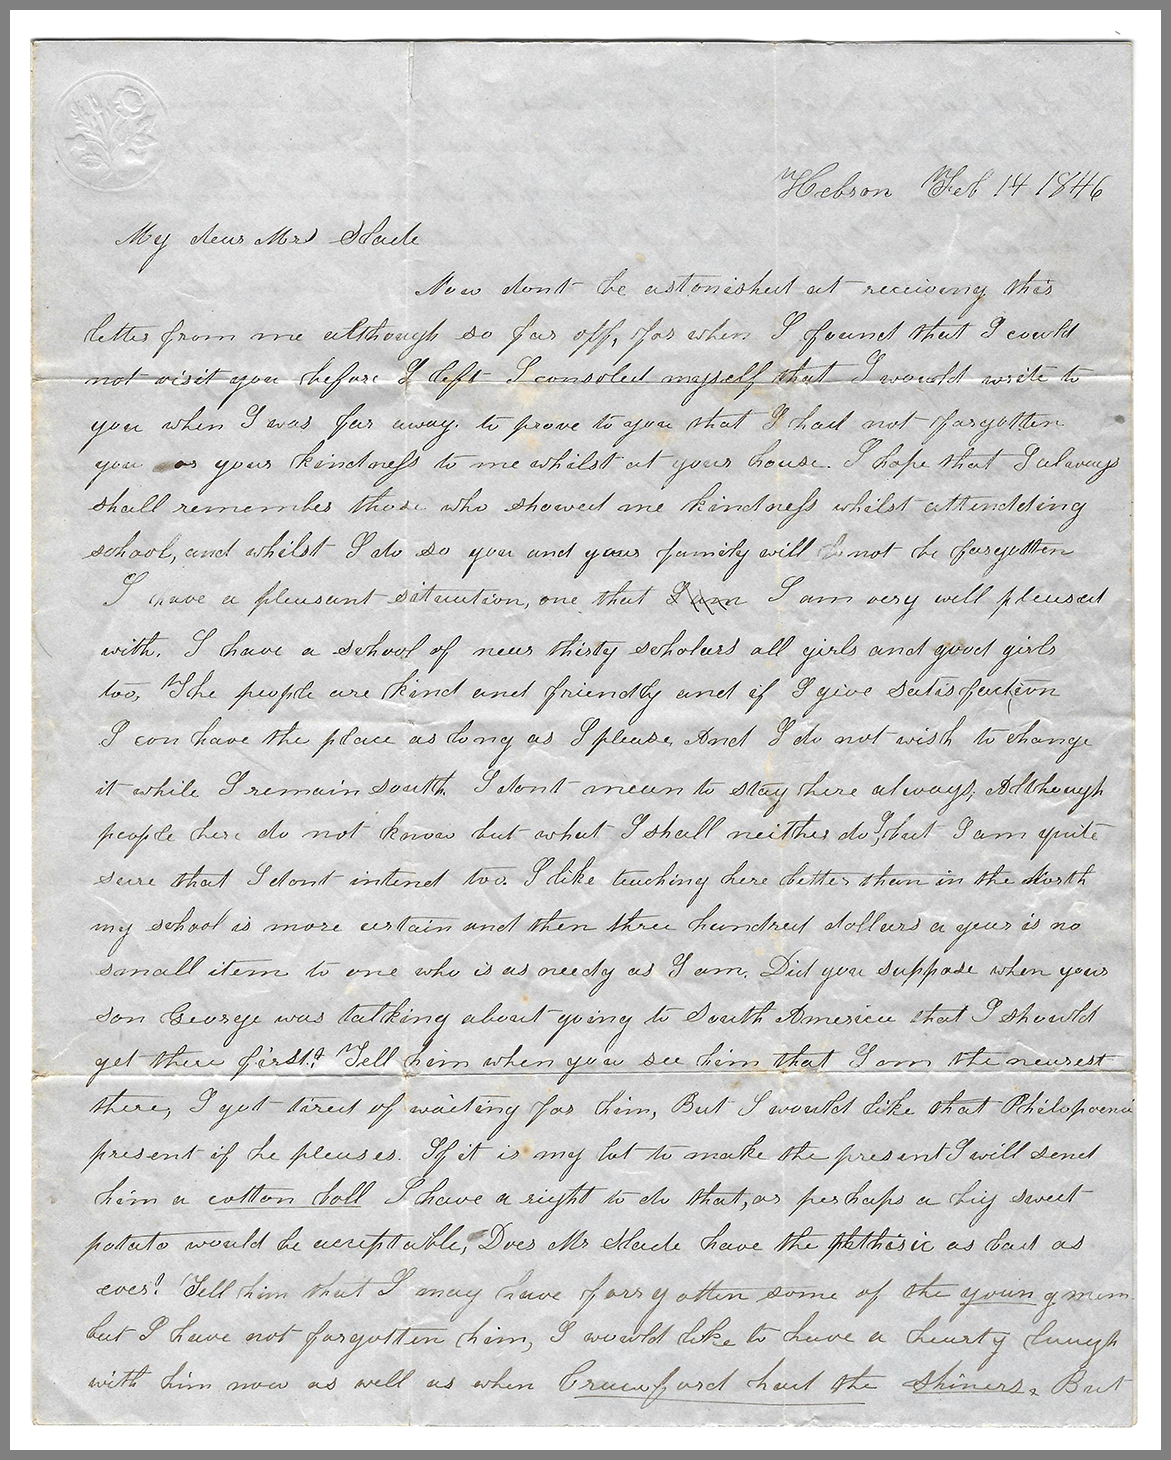 Hebron Feb 14 1846
My dear Mrs Slade
Now dont be astonished at receiving this
letter from me although so far off, for when I found that I could
not visit you before I left I consoled myself that I would write to
you when I was far away. to prove to you that I had not forgotten
you or your kindness to me whilst at your house. I hope that I always
shall remember those who showed me kindness whilst attendding
school, and whilst I do so you and your family will not be forgotten
I have a pleasant situation, one that I am I am very well pleased
with. I have a school of near thirty scholars all girls and good girls
too, The people are kind and friendly and if I give satisfaction
I can have the place as long as I please, And I do not wish to change
it while I remain south I dont mean to stay here always, Although
people here do not know but what I shall neither do I, but I am quite
sure that I dont intend too. I like teaching here better than in the North
my school is more certain and then three hundred dollars a year is no
small item to one who is as needy as I am. Did you suppose when your
son George was talking about going to South America that I should
get there first? Tell him when you see him that I am the nearest
there, I got tired of waiting for him, But I would like that
present if he pleases. If it is my lot to make the present I will send
him a cotton boll I have a right to do that, or perhaps a big sweet
potato would be acceptable, Does Mr Slade have the phthisic as bad as
ever? Tell him that I may have forrgotten some of the young men
but I have not forgotten him, I would like to have a hearty laugh
with him now as well as when Crawford had the shiners, But